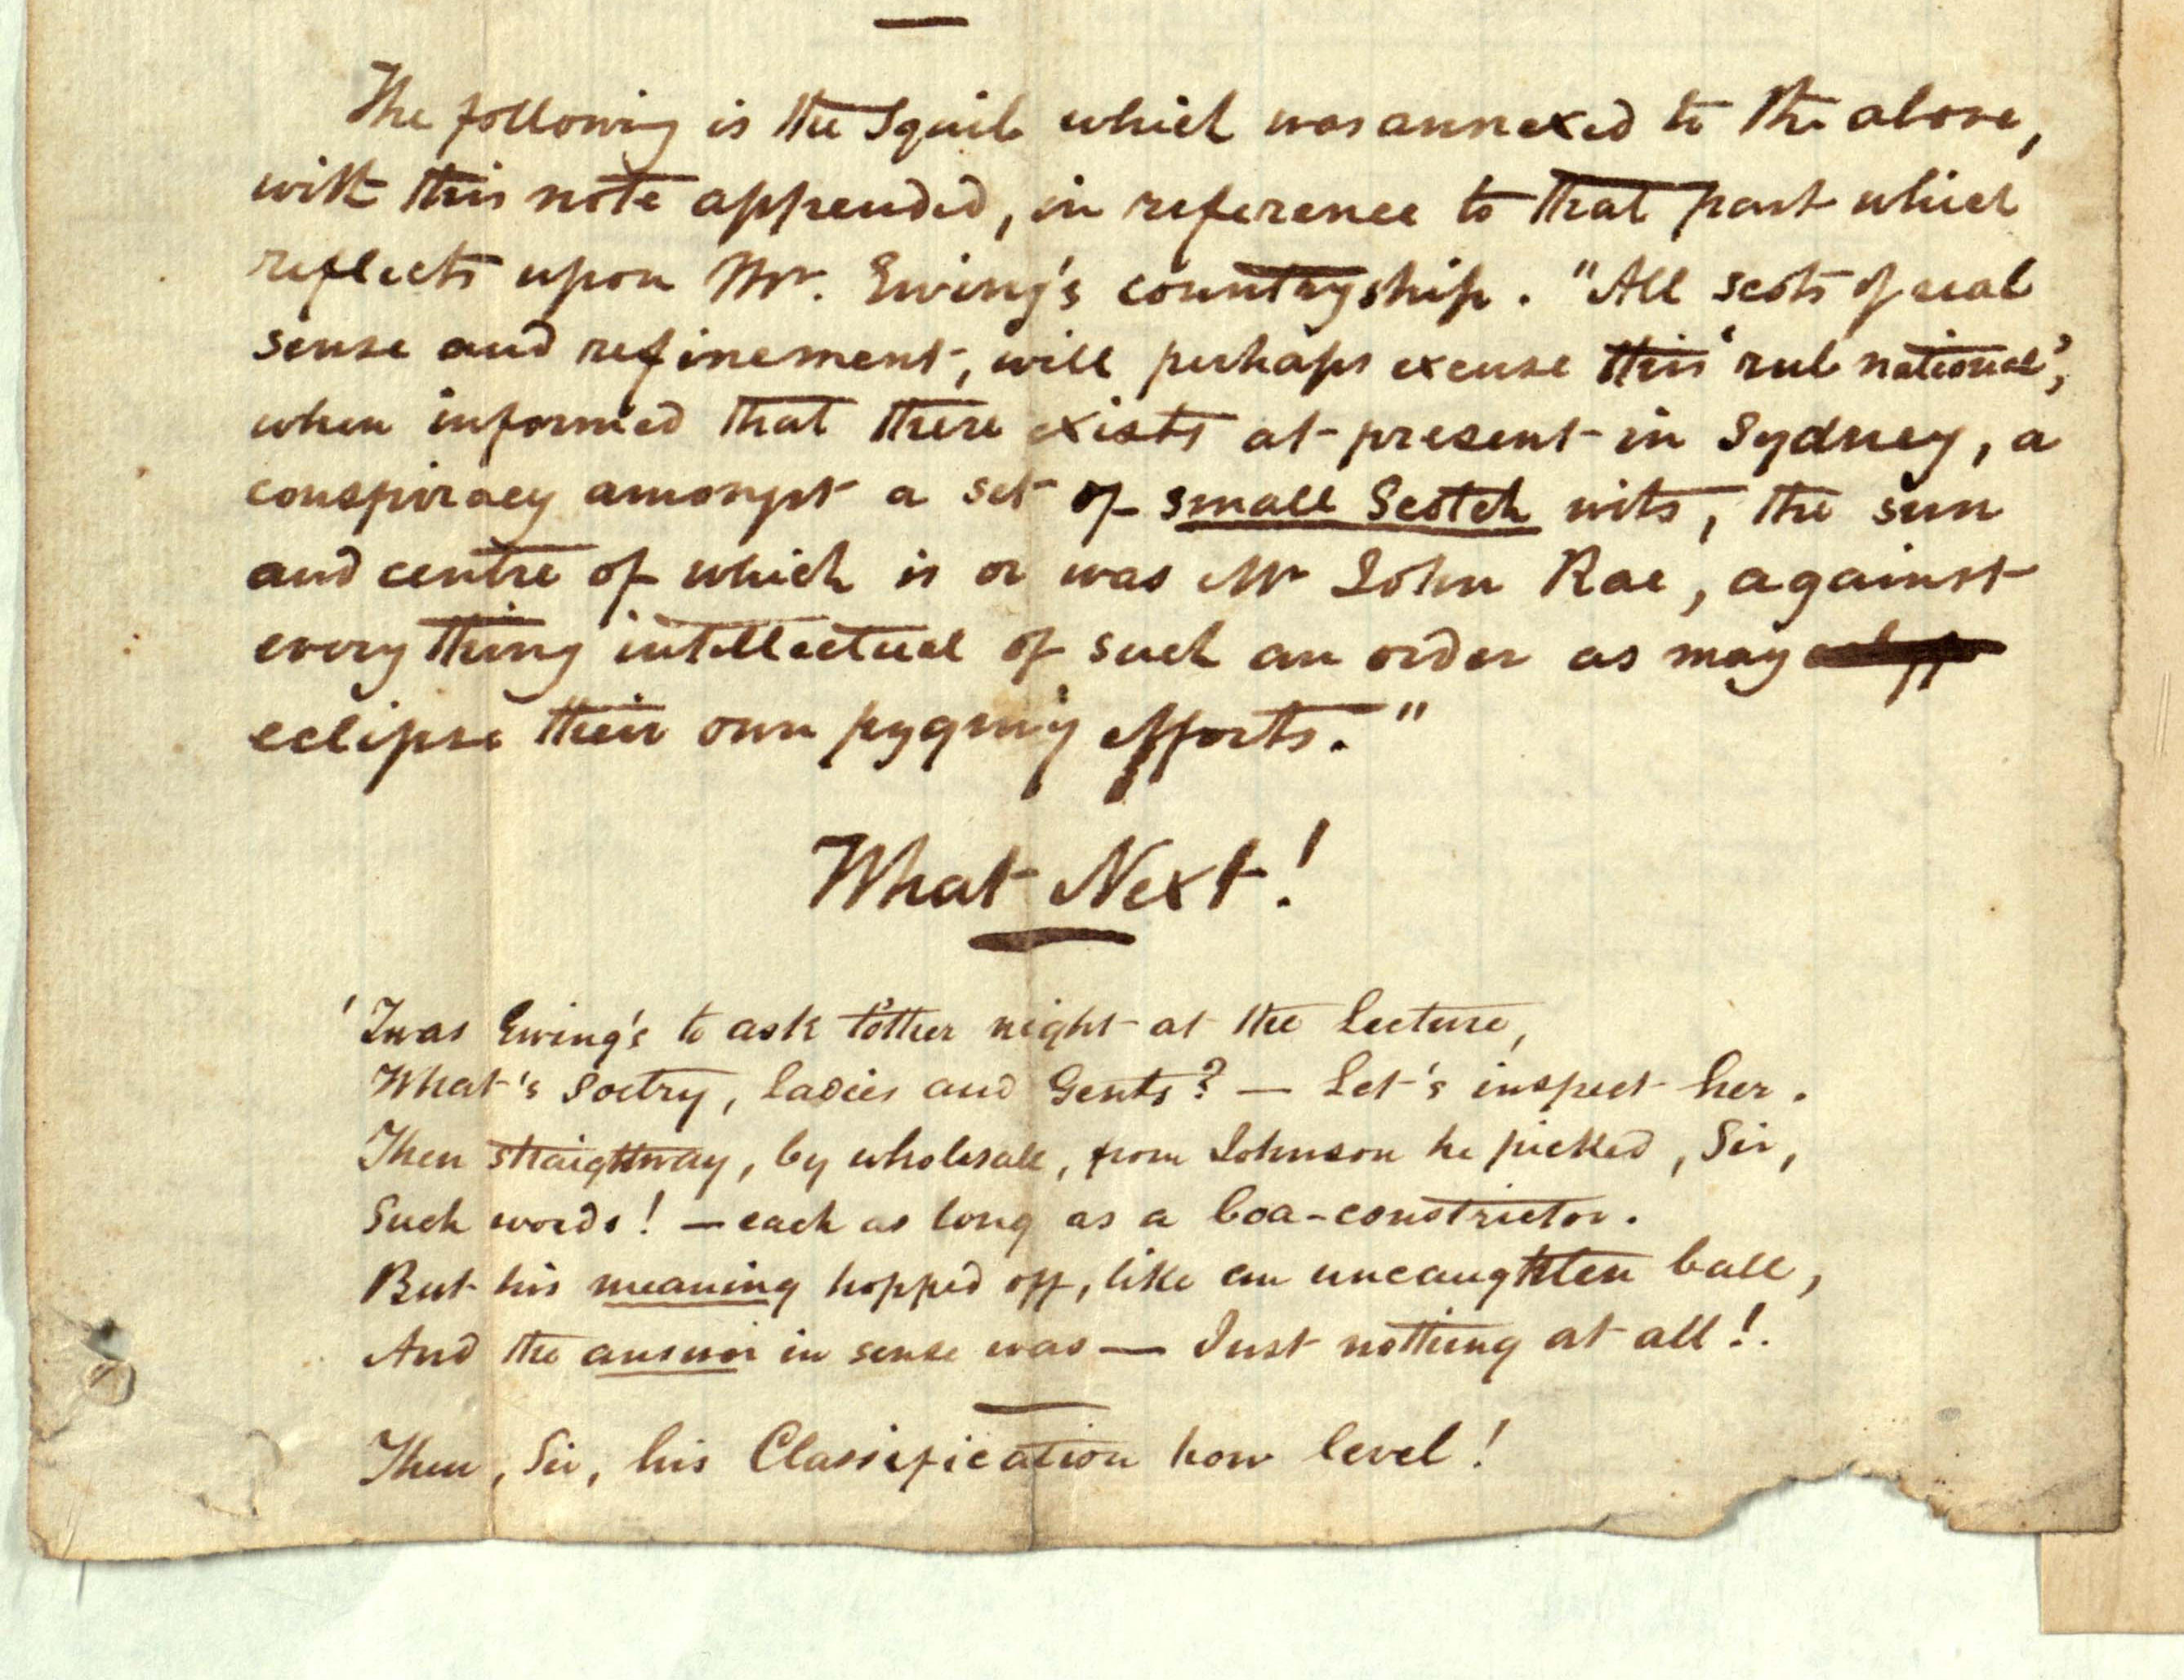 The following is the Squib which was annexed to the above,
with this note appended, in reference to that part which
reflects upon Mr. Ewing's countryship. "All scots of real
sense and refinement, will perhaps excuse this 'rub national',
when informed that there exists at present in Sydney, a
conspiracy amongst a set of small Scotch wits, the sun
and centre of which is or was Mr John Rae, against
every thing intellectual of such an order as may
eclipse their own pygmy efforts."
What Next!
'Twas Ewing's to ask t'other night at the lecture,
What's Poetry, ladies and Gents? — Let's inspect her.
Then straightway, by wholesale, from Johnson he picked, Sir,
Such words! — each as long as a boa-constrictor.
But his meaning hopped off, like an uncaughten ball,
And the answer in sense was — Just nothing at all!.
Then, Sir, his Classification how level!